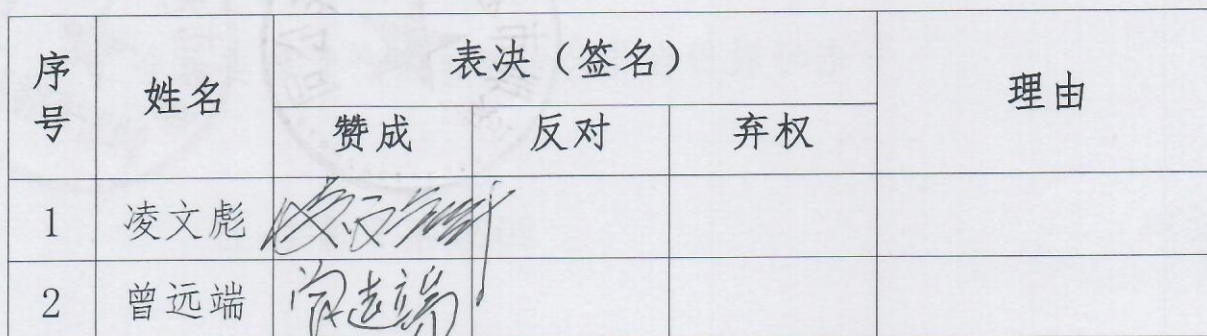 序号 姓名 表决（签名） 理由
赞成 反对 弃权
1 凌文彪 凌文彪
2 曾远端 曾远端